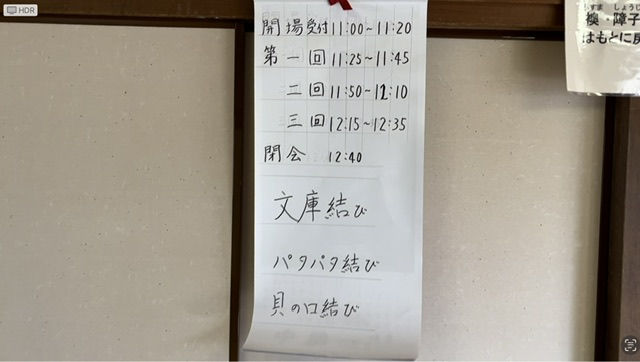 HDR
開場受付 11:00~11:20
第一回 11:25~11:45
二回 11:50~12:10
三回 12:15~12:35
閉会 12:40
文庫結び
パタパタ結び
貝の口結び
ふすま しょうじ
襖・障子
はもとに戻